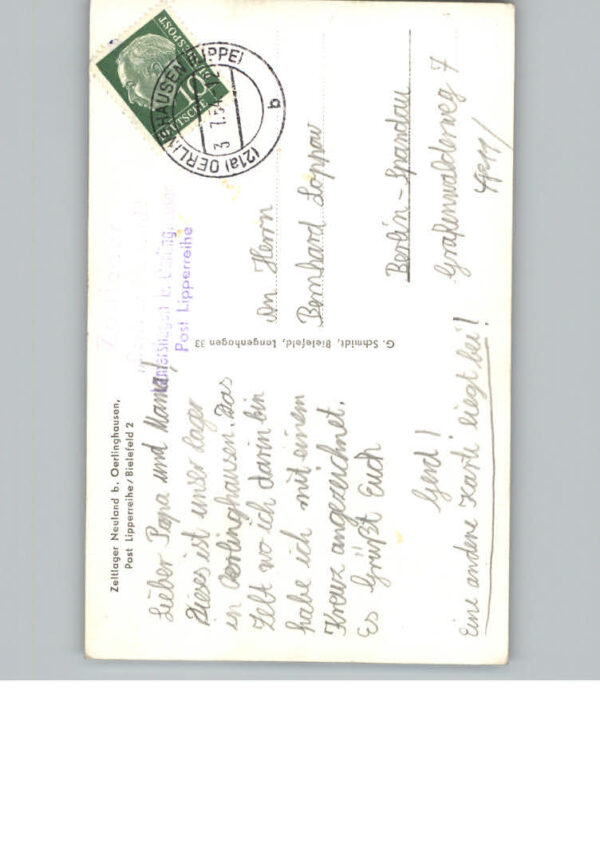 Zeltlager Neuland b. Oerlinghausen,
Post Lipperreihe/Bielefeld 2
Lieber Papa und Mama!
Dieses ist unser Lager
in Oerlinghausen. Das
Zelt wo ich darin bin
habe ich mit einem
Kreuz angezeichnet.
Es Grüßt Euch
Gerd!
Eine andere Karte liegt bei!
G. Schmidt, Bielefeld, Lengenhagen 33
Post Lipperreihe
DEUTSCHE BUNDESPOST
10
(21a) OERLINGHAUSEN (LIPPE)
3.7.54
b
An Herrn
Bernhard Loppow
Berlin-Spandau
Grafenwalderweg 7